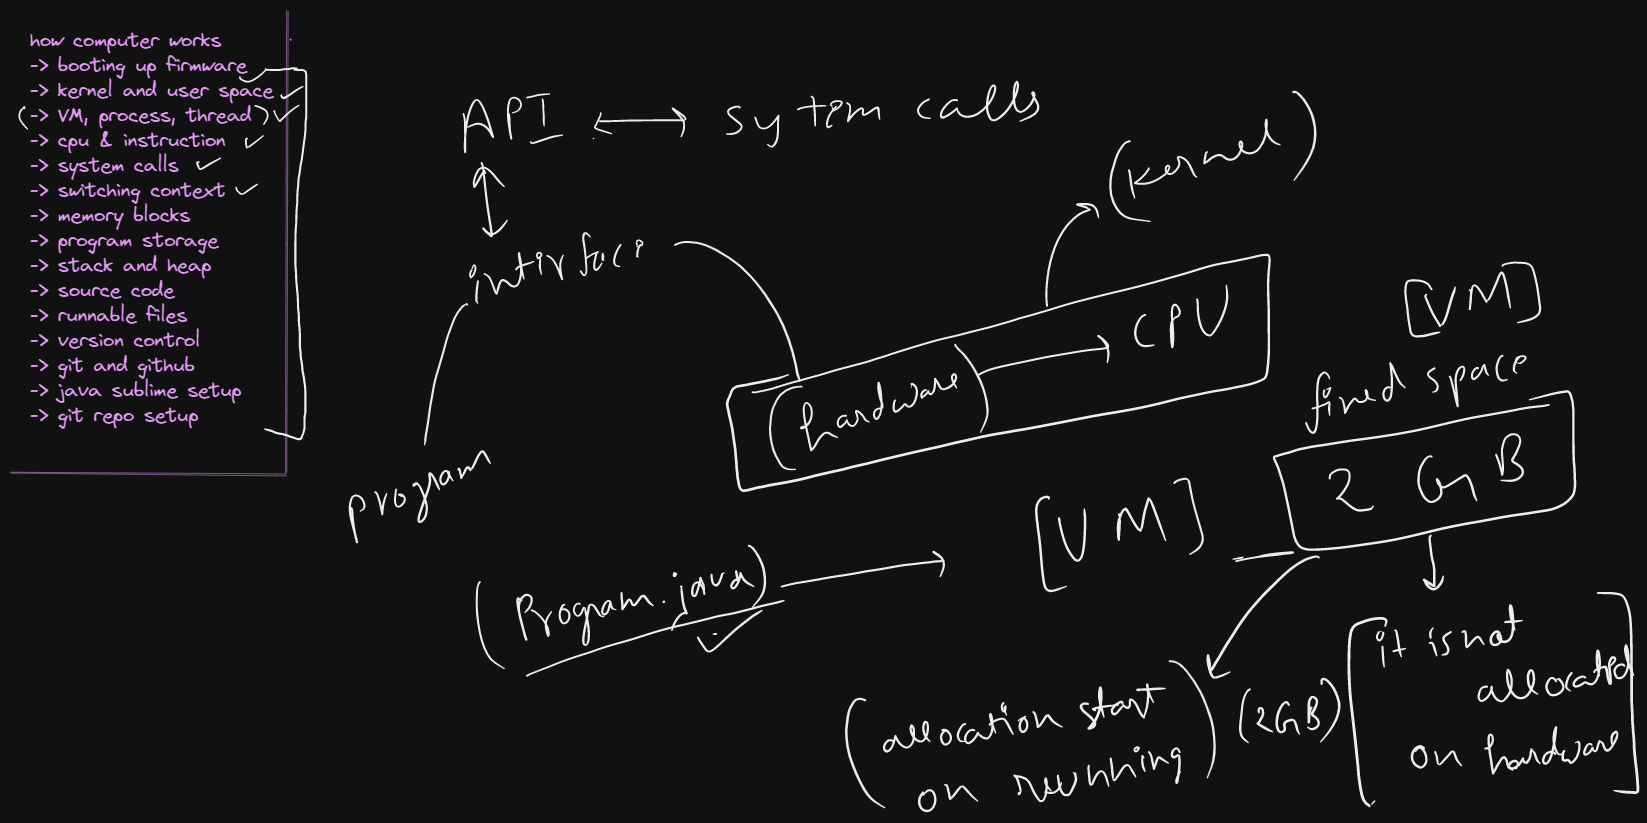 how computer works
-> booting up firmware
-> kernel and user space
(-> VM, process, thread)
-> cpu & instruction
-> system calls
-> switching context
-> memory blocks
-> program storage
-> stack and heap
-> source code
-> runnable files
-> version control
-> git and github
-> java sublime setup
-> git repo setup
API ↔ system calls
(Kernel)
interface
(hardware) → CPU
program
[VM]
fixed space
2 GB
(Program.java) → [VM]
(allocation start
on running)
(2GB)
[it is not
allocated
on hardware]